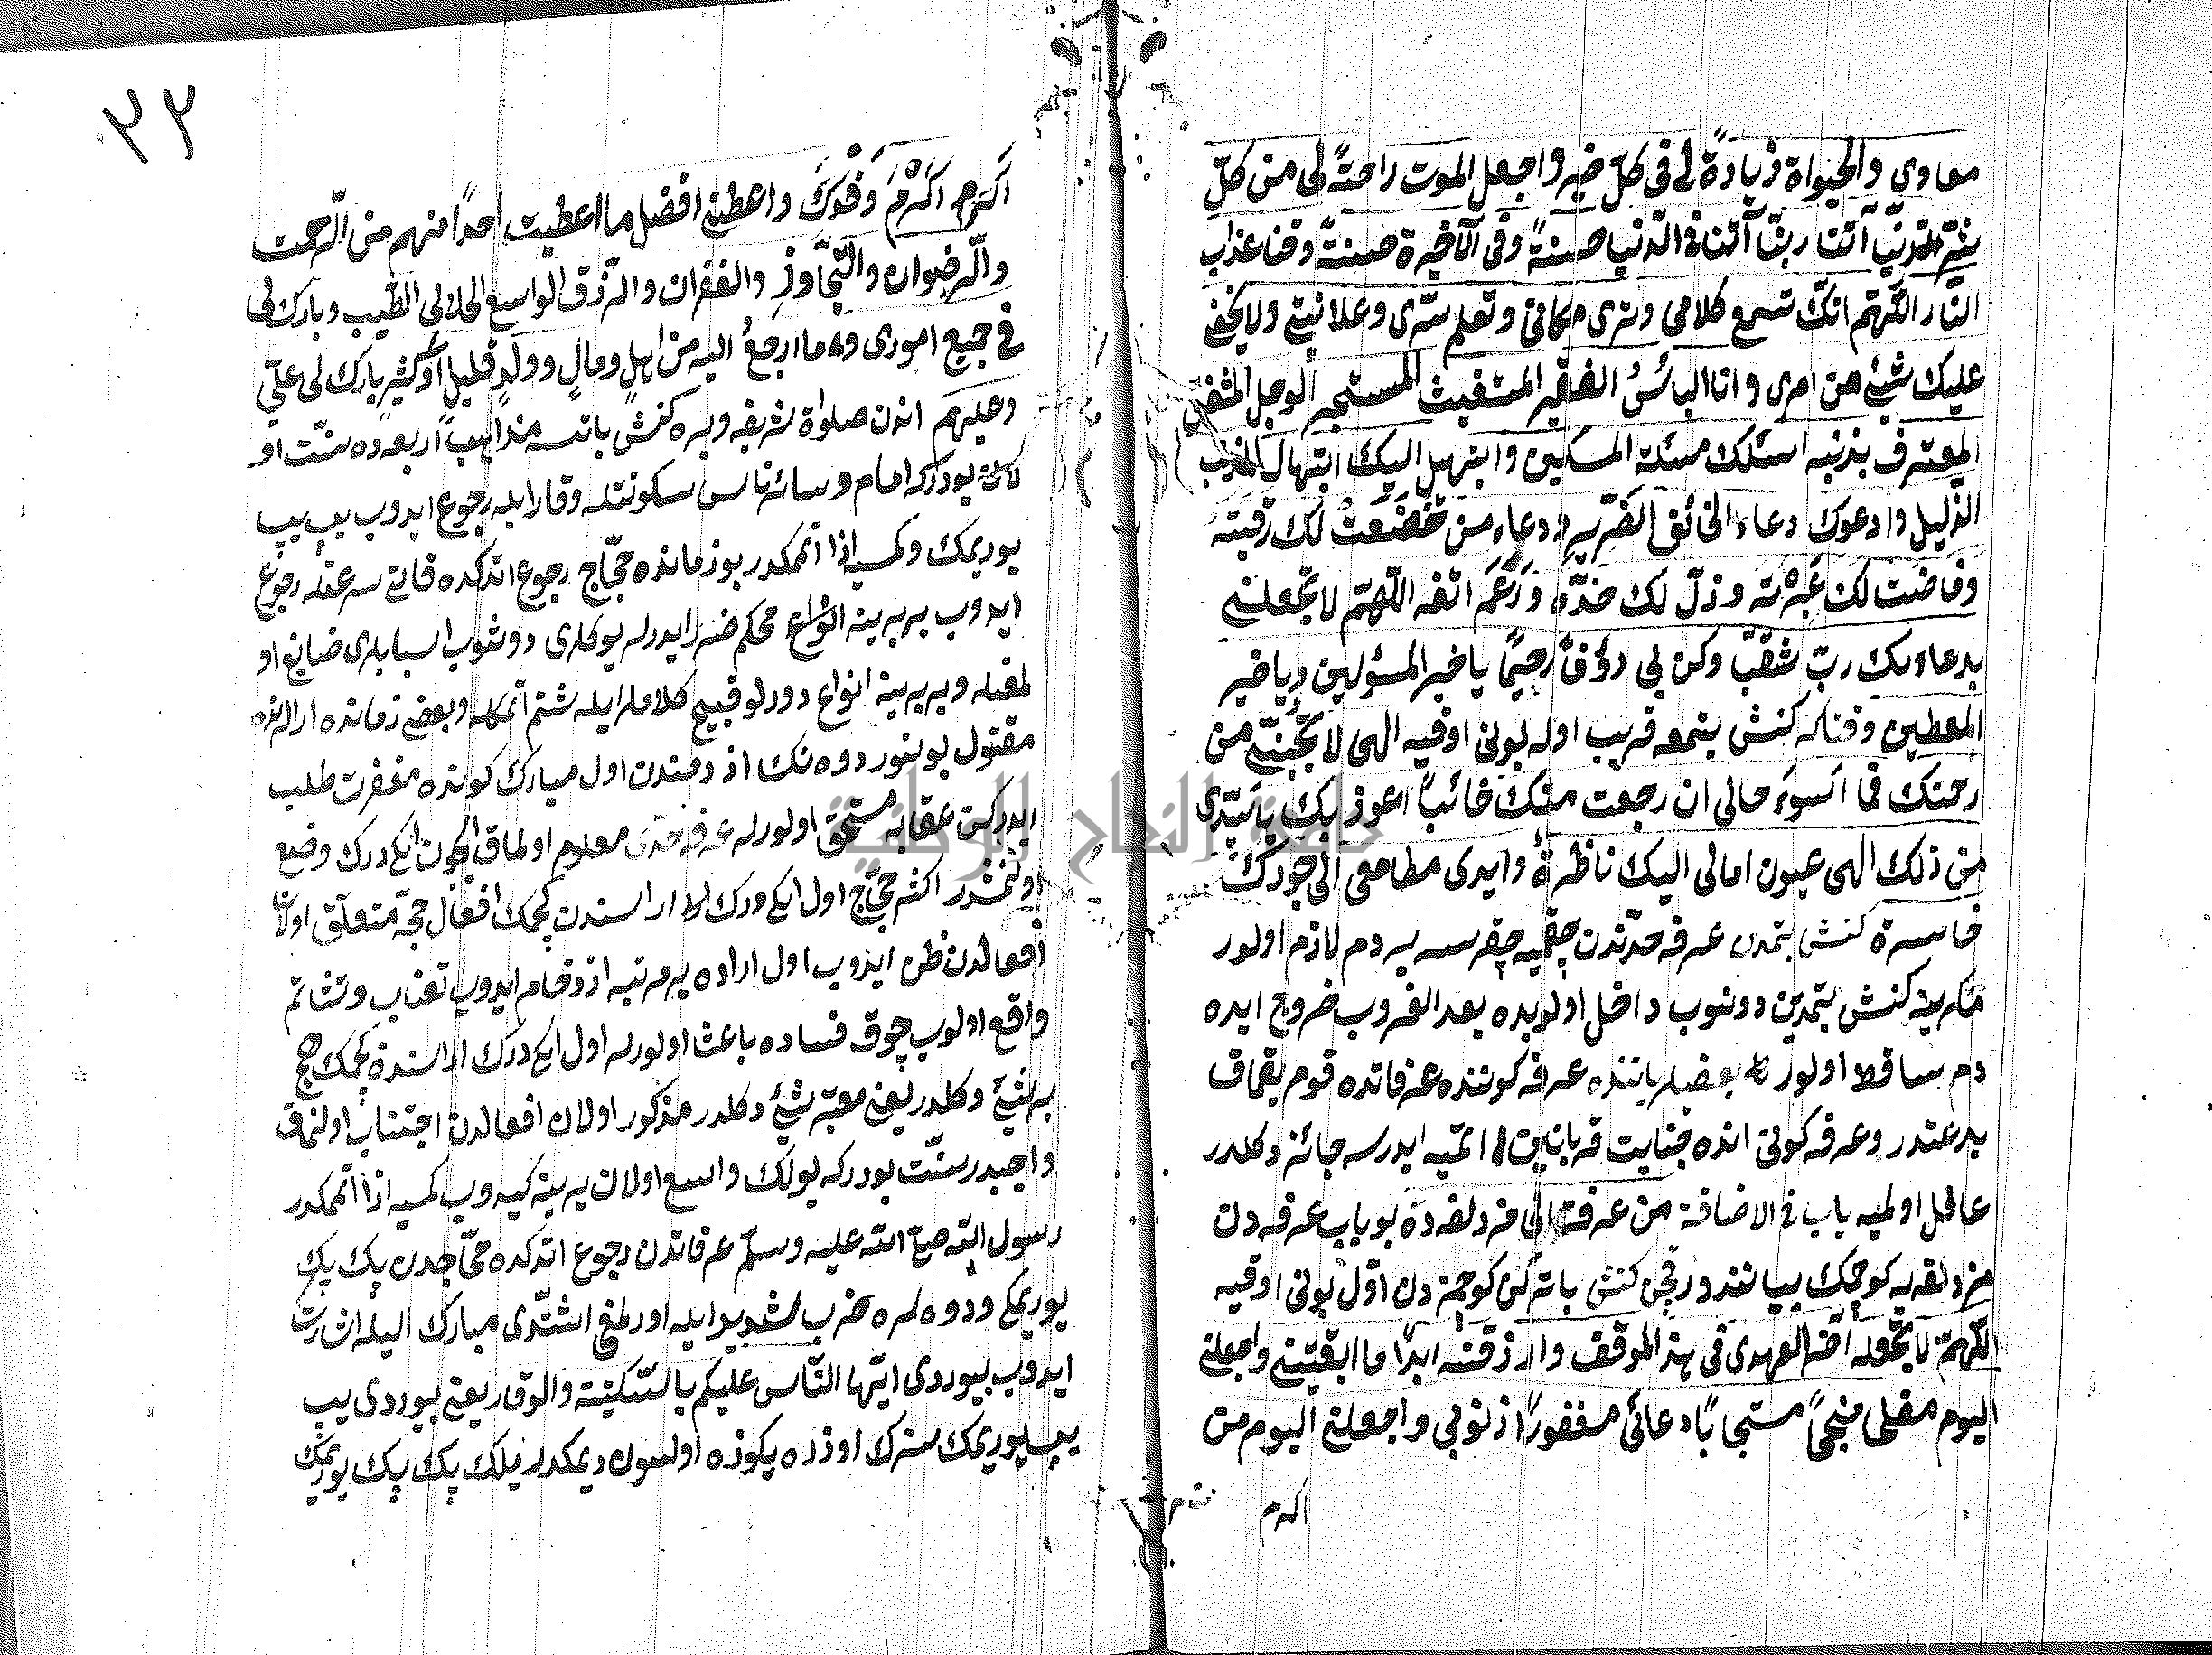 معادي والحيواة زيادة لي في كلّ خير واجعل الموت راحةً لي من كلّ
شرّ اللهم ربّنا آتنا ربنا آتنا في الدّنيا حسنةً وفي الآخرة حسنةً وقنا عذاب
النّار اللّهمّ انّك تسمع كلامي وترى مكاني وتعلم سرّي وعلانيتي ولا يخفى
عليك شيئ من امري وانا البائسُ الفقير المستغيث المستجير الوجل المشفق
المعترف بذنبه اسئلك مسئلة المسكين وابتهل اليك ابتهال المذنب
الذّليل وادعوك دعاء الخائف الضّرير ودعاء من خضعت لك رقبته
وفاضت لك عَبْرته وذلّ لك خدّه ورَغَم انفه اللّهمّ لا تجعلني
بدعاءك ربّ شقيًّا وكن بي رؤفًا رحيمًا يا خير المسئولين ويا خير
المعطين وقتاكه كنش بتمه قريب اوله بوني اوقيه الهي لا تجنّبني من
رحمتك فما اسوءَ حالي ان رجعت منك خائبًا اعوذ بك يا سيّدي
من ذلك الهي عيون امالي اليك ناظرةٌ وايدي مطامعي الى جودك
خاسرة كنش بتمدن عرفه حدّندن چقميه چقرسه بر دم لازم اولور
مكرينه كنش بتمدين دونوب داخل اولديده بعد الغروب خروج ايده
دم ساقط اولور بعضيلر ياننده عرفه كوننده عرفاتده قوم يقماق
بدعتدر وعرفه كوني انده جنايت قربانين اتميه ايدرسه جائز دكلدر
غافل اولميه باب في الافاضة من عرفة الى مزدلفه ده بو باب عرفه دن
مزدلفه يه كوچمك بياننده در قچن كنش باته كن كوچمزدن اوّل بوني اوقيه
اللّهمّ لا تجعله آخر العهدى في هذ الموقف وارزقنيه ابدًا ما ابقيتني واجعلني
اليوم مفلحًا منجحًا مستجابًا دعائي مغفورًا ذنوبي واجعلني اليوم من
اكرم
٣٣
اكرم اكرم وفدك واعطني افضل ما اعطيت احدًا منهم من الرّحمت
والرّضوان والتّجاوز والغفران والرّزق الواسع الحلال الطّيب وبارك لي
في جميع اموري وما ارجعُ اليه من اهلٍ ومالٍ وولدٍ قليل او كثير بارك لي عليّ
وعليهم اندن صلوة شريفه ويره كنش باتسه مذاهب اربعه ده سنّت او
لان بودركه امام وسائر ناس سكونتله وقار ايله رجوع ايدوب يب يب
يوريمك وكمسيه اذا اتممكدر بو زمانده حجّاج رجوع اتدكده قاتي سرعتله رجوع
ايدوب بربرينه انواع محكم ضرر ايدرلر يوكلري دوشوب اسبابلري ضايع او
لمغله وبربرينه انواع دورلو قبيح كلاملر ايله شتم اتمكله وبعضي زمانده ارالرنده
مقتول بولنور دوه نك ازدحمندن اول مبارك كونده مغفرت طلب
ايدركن عقابه مستحق اولورلر عرفه حدّى معلوم اولماق ايچون ايكي درك وضع
اولنمشدر اكثر حجّاج اول ايكي درك اراسندن كچمك افعال حجّه متعلّق اولان
افعالدن ظن ايدوب اول اراده بر مرتبه ازدحام ايدوب تضارب وتشاتم
واقع اولوب چوق فساده باعث اولورلر اول ايكي درك اراسنده كچمك حج
بر شيئ دكلدر يعني معتبر شيئ دكلدر مذكور اولان افعالدن اجتناب اولنماق
واجبدر سنّت بودركه يولك واسع اولان يرينه كيدوب كمسيه اذا اتممكدر
رسول الله صلى الله عليه وسلّم عرفاتدن رجوع اتدكده حجّاجدن پك پك
يوريمكي ودوه لره ضرب شديد ايله اورلمغي اشتّدى مبارك اليله اشارت
ايدوب بيوردى ايّها النّاس عليكم بالسّكينة والوقار يعني بيوردى يب
يب يوريمك سزك اوزره يكوزه اولسون ديمكدر يلك پك پك يوريمك